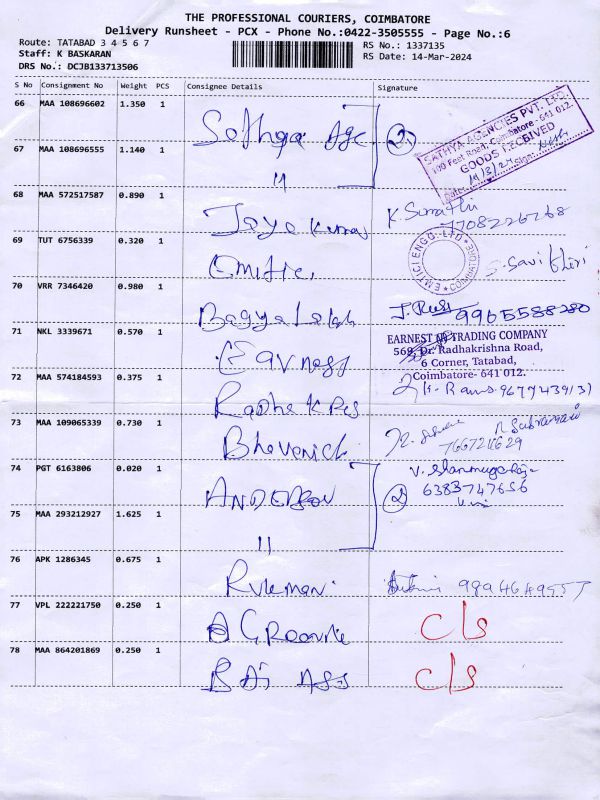 THE PROFESSIONAL COURIERS, COIMBATORE
Delivery Runsheet - PCX - Phone No.:0422-3505555 - Page No.:6
Route: TATABAD 3 4 5 6 7
Staff: K BASKARAN
DRS No.: DCJB133713506
RS No.: 1337135
RS Date: 14-Mar-2024
S No Consignment No Weight PCS Consignee Details Signature
66 MAA 108696602 1.350 1 Sathya Age
67 MAA 108696555 1.140 1 "
2
SATHYA AGENCIES PVT. LTD.
100 Feet Road, Coimbatore - 641 012.
GOODS RECEIVED
Date: 14/3/24 Sign:
68 MAA 572517587 0.890 1 Jaya Kumar K. Sumathi
7708226768
69 TUT 6756339 0.320 1 S. Savithiri
70 VRR 7346420 0.980 1 9965588280
71 NKL 3339671 0.570 1
EARNEST TRADING COMPANY
569, Dr. Radhakrishna Road,
6 Corner, Tatabad,
Coimbatore- 641 012.
72 MAA 574184593 0.375 1 Radha K 9677439131
73 MAA 109065339 0.730 1
7667211629
74 PGT 6163806 0.020 1 V. Shanmuga Raja
6383747656
75 MAA 293212927 1.625 1 "
2
76 APK 1286345 0.675 1
77 VPL 222221750 0.250 1 c/s
78 MAA 864201869 0.250 1 c/s